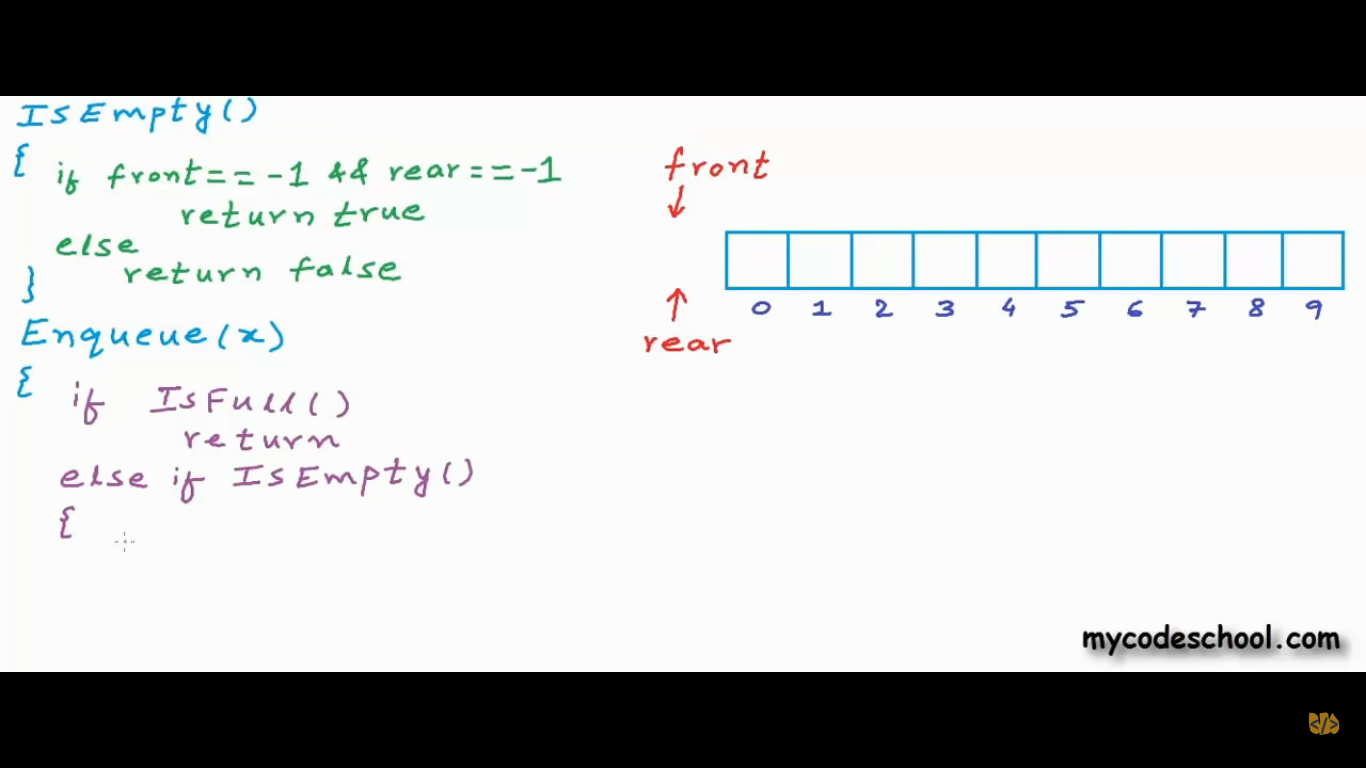 IsEmpty()
{ if front == -1 && rear == -1
return true
else
return false
}
Enqueue(x)
{ if IsFull()
return
else if IsEmpty()
{
front
rear
0 1 2 3 4 5 6 7 8 9
mycodeschool.com